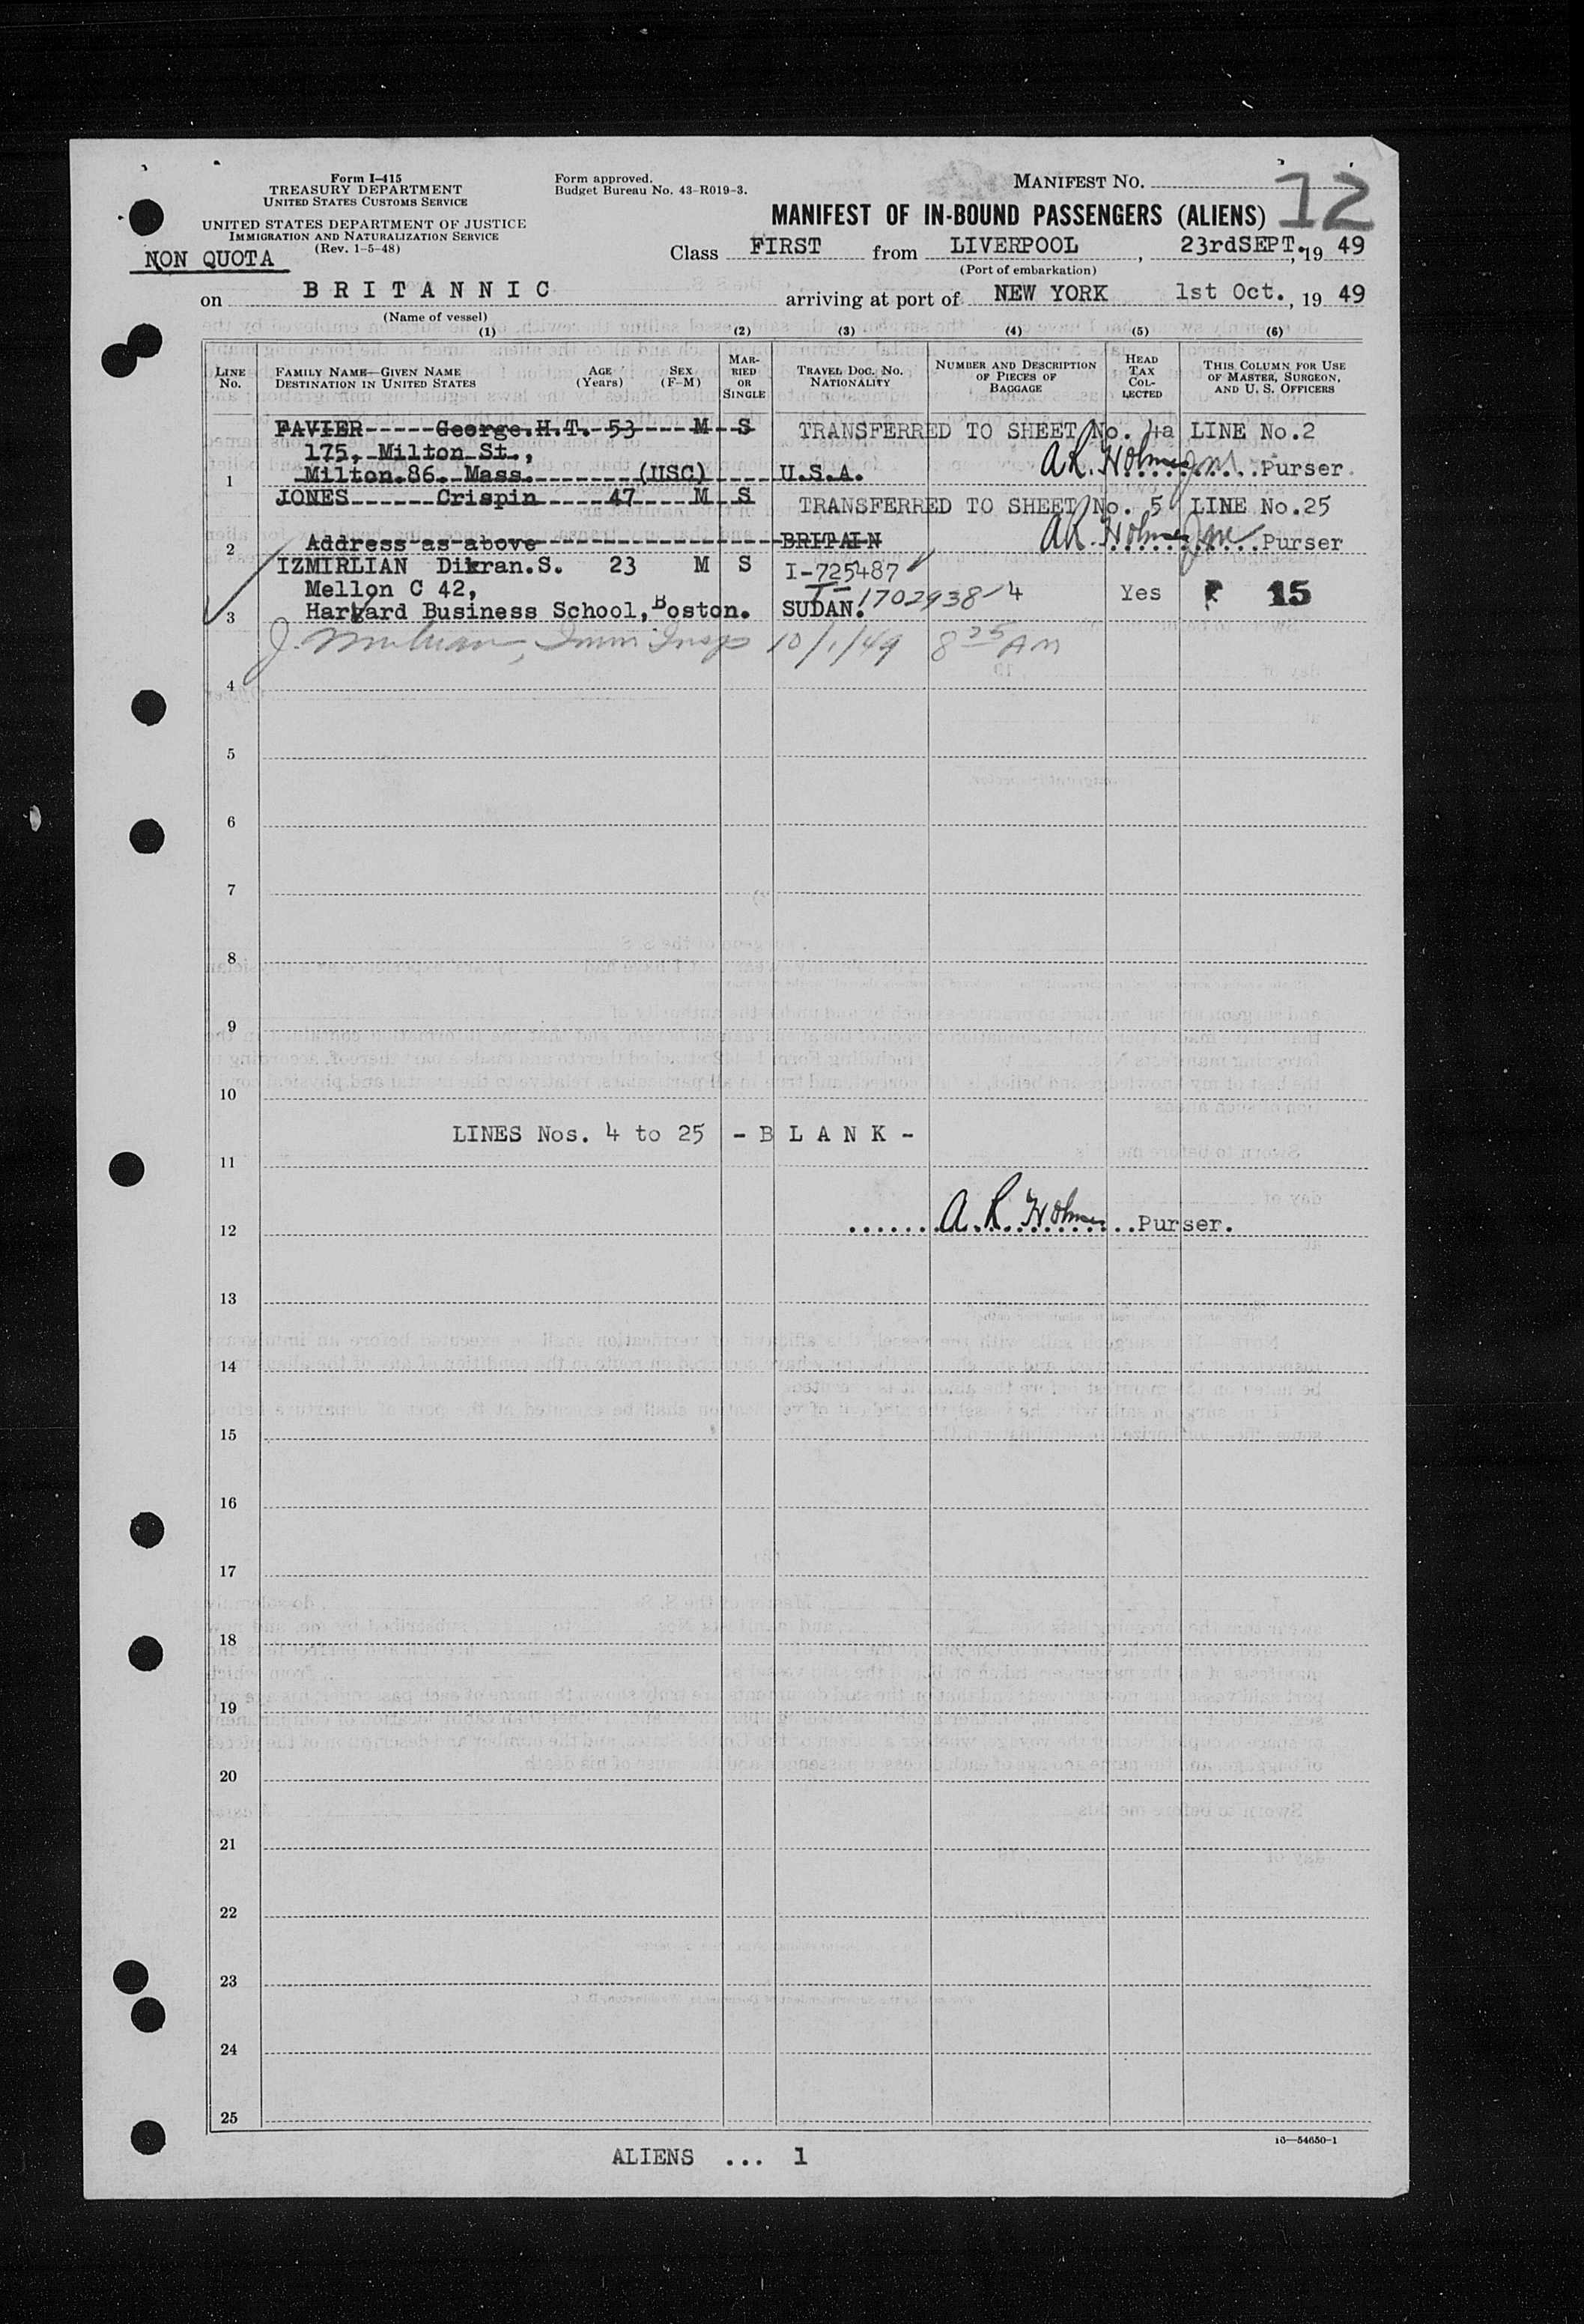 Form I-415
TREASURY DEPARTMENT
UNITED STATES CUSTOMS SERVICE
UNITED STATES DEPARTMENT OF JUSTICE
IMMIGRATION AND NATURALIZATION SERVICE
(Rev. 1-5-48)
NON QUOTA
Form approved.
Budget Bureau No. 43-R019-3.
MANIFEST NO. 12
MANIFEST OF IN-BOUND PASSENGERS (ALIENS)
Class FIRST from LIVERPOOL, 23rdSEPT., 19 49
(Port of embarkation)
on BRITANNIC arriving at port of NEW YORK 1st Oct., 19 49
(Name of vessel)
(1) (2) (3) (4) (5) (6)
LINE No. FAMILY NAME—GIVEN NAME DESTINATION IN UNITED STATES AGE (Years) SEX (F-M) MARRIED OR SINGLE TRAVEL DOC. NO. NATIONALITY NUMBER AND DESCRIPTION OF PIECES OF BAGGAGE HEAD TAX COLLECTED THIS COLUMN FOR USE OF MASTER, SURGEON, AND U. S. OFFICERS
FAVIER George.H.T. 53 M S TRANSFERRED TO SHEET No. 4a LINE No.2
175, Milton St.,
1 Milton.86. Mass. (USC) U.S.A. A.R. Holmes Purser.
JONES Crispin 47 M S TRANSFERRED TO SHEET No. 5 LINE No.25
2 Address as above BRITAIN A.R. Holmes Purser
IZMIRLIAN Dikran.S. 23 M S I-725487
Mellon C 42, 4 Yes 15
3 Harvard Business School, Boston. SUDAN. 1702938
J. Imm. Insp 10/1/49 8 25 AM
4
5
6
7
8
9
10
LINES Nos. 4 to 25 - BLANK -
11
12 A. R. Holmes Purser.
13
14
15
16
17
18
19
20
21
22
23
24
25
16—54650-1
ALIENS ... 1